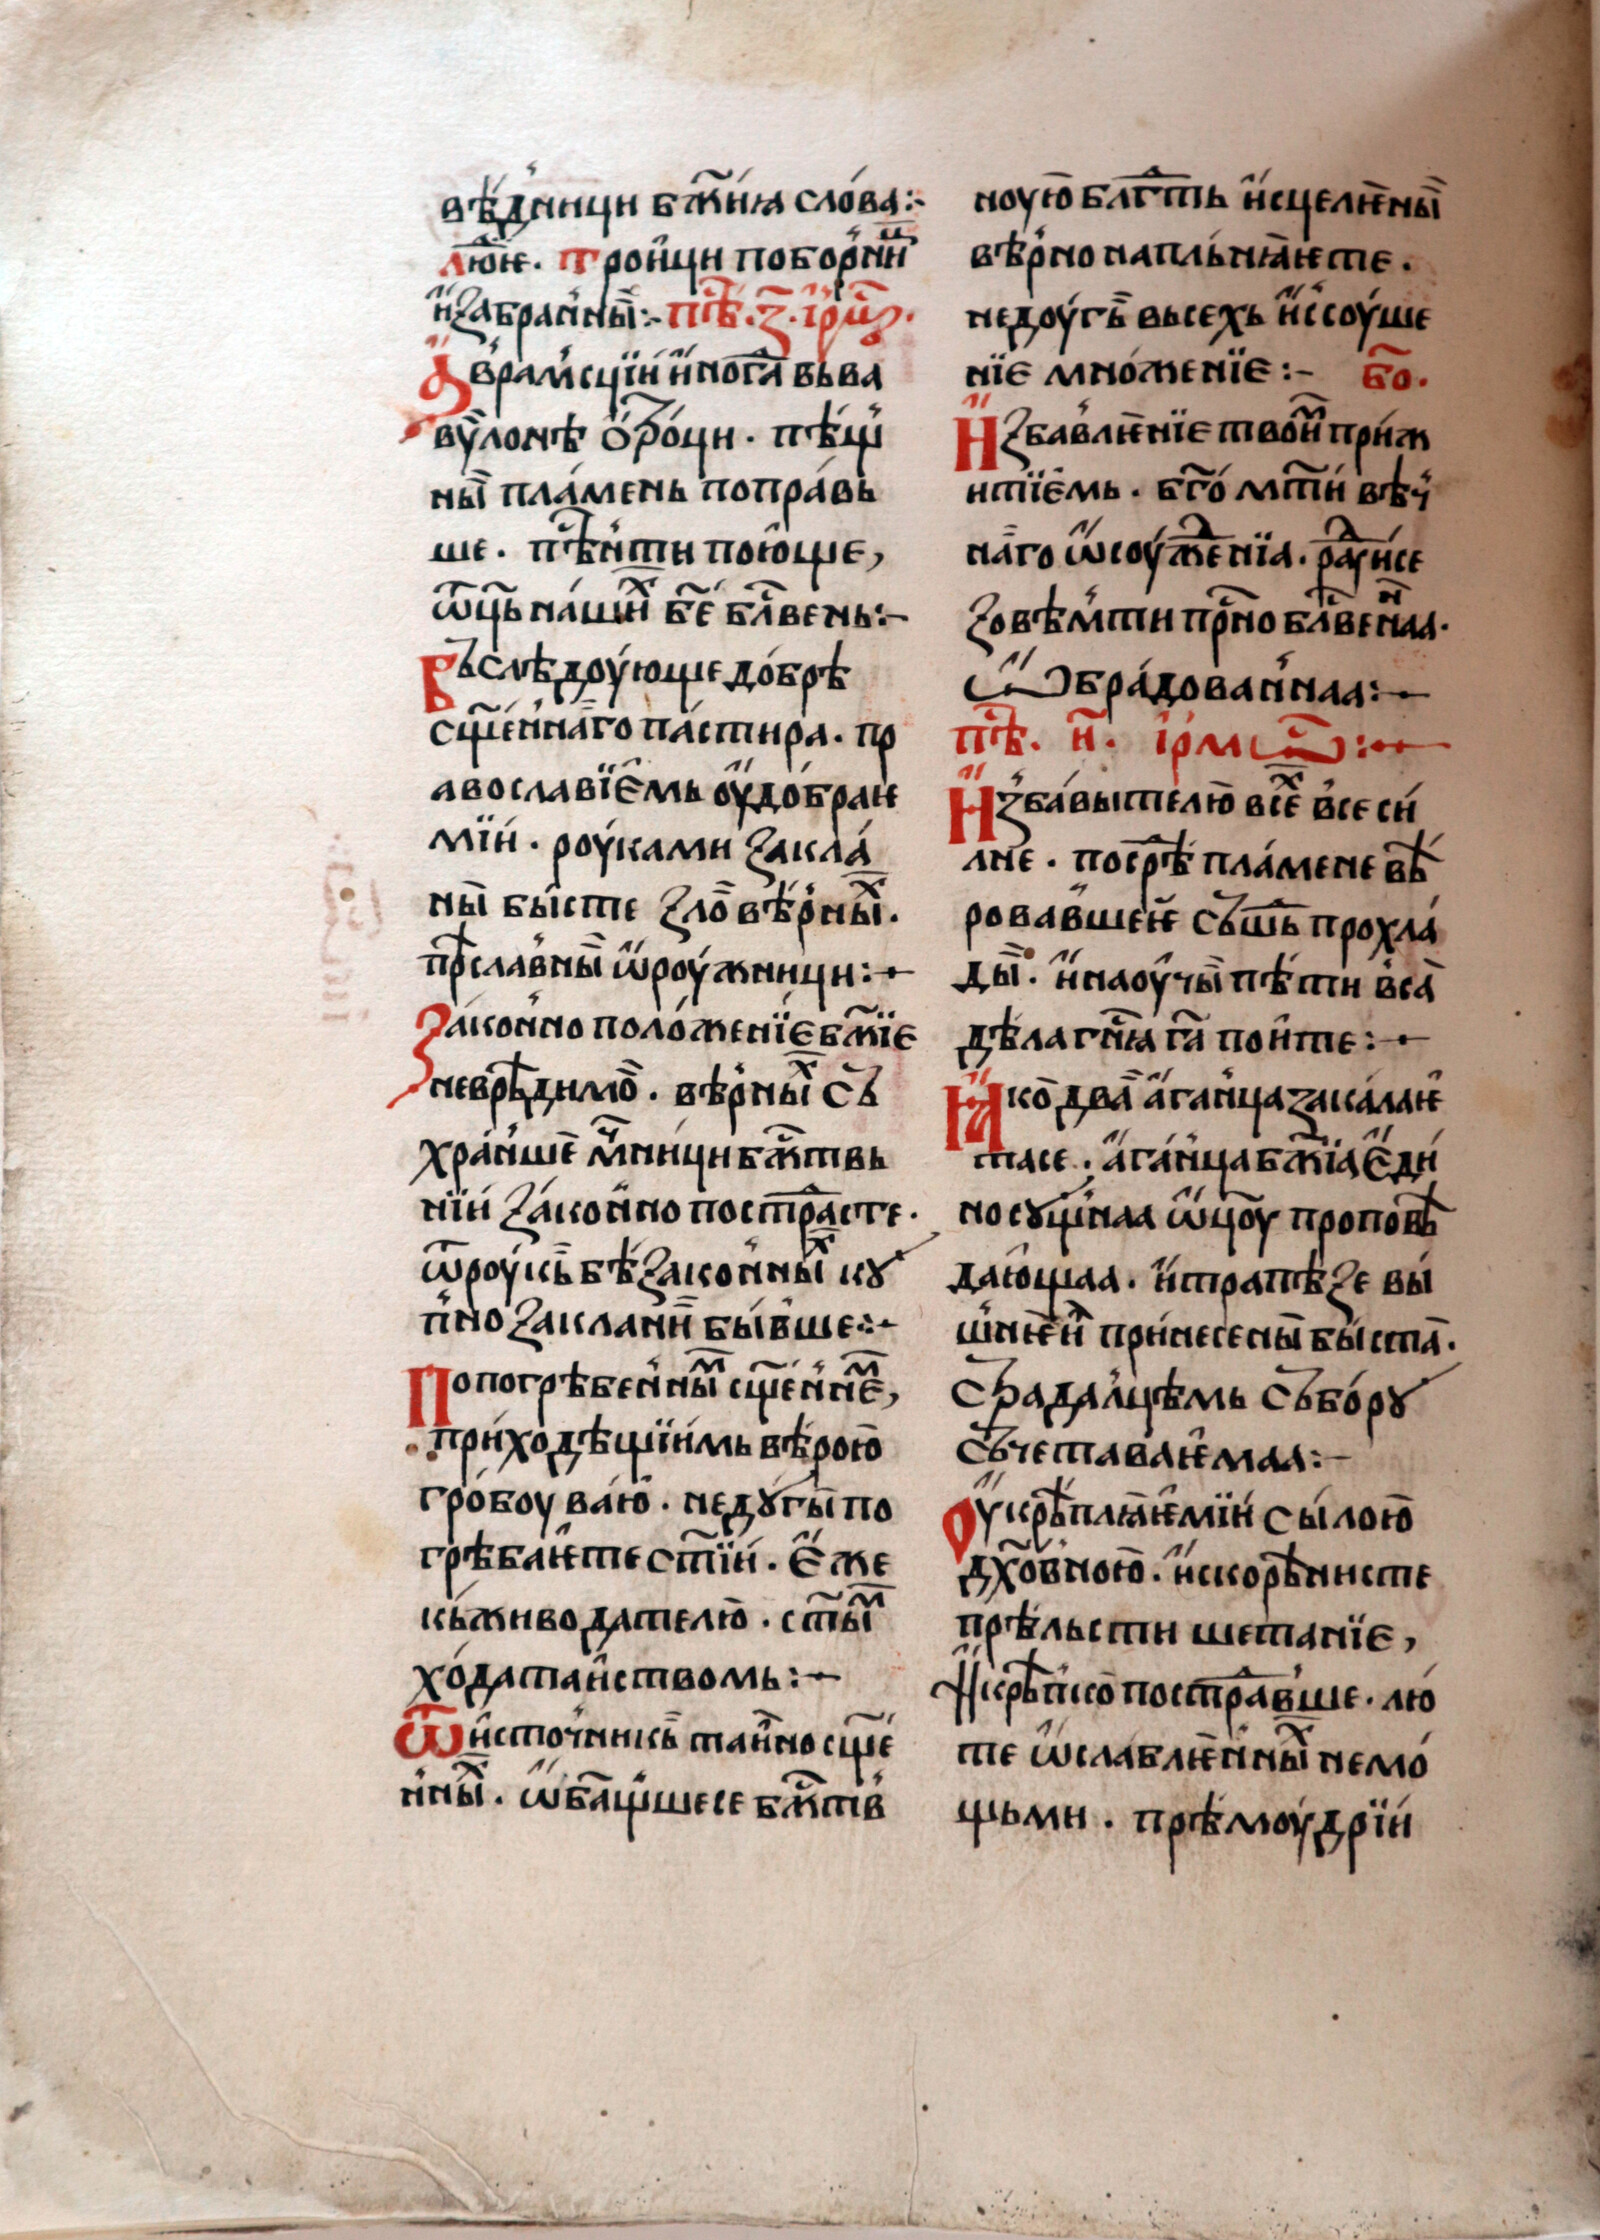 вѣ́дници бж҃иꙗ сло́ва:-
лю̑и҆е. трои҆ци поборни́ц
и҆ꙁбран҆ны҇:- пѣ҇. ꙁ҃. і҆рмⷭ҇.
А҆врам҆сції и҆ногⷣа вьва
вѷ҇лонѣ ѻ҆троци. пѣ́щ
ны҇ пла́мень попра́вь
ше. пѣⷭ҇н҆ти пою҆ще,
ѿц҃ь на́шиⷯ б҃е бл҃вень:-
Въслѣдоу́юще до́брѣ
сщ҃ен҆на҇го па́стира. пр
авославїе҆мь оу҆до́браѥ
мїи. роу́ками ꙁакла́
ны҇ бы́сте ꙁло҇вѣ́р҆ныⷯ.
прⷭ҇лав҆ны҇ ѡ҆роу́жници:-
Ꙁакон҆но поло́женїе бж҃їе
неврѣⷣимо҇. вѣ́р҆ныⷯ съ
храньше҇ мⷱ҇ници бжⷭ҇твь
нїи ꙁа́кон҆но пострⷣасте.
ѿроу́кь҇ бѣꙁакон҆ныⷯ кꙋ
п҆но ꙁаклани҇ бы́в҆ше:-
Попогрѣбен҆ныⷨ сщ҃ен҆неⷨ,
при́ходѣщїи́мь вѣ́рою҇
гро́боу ва́ю̑. недꙋ́гы҇ по
грѣбаѥте ст҃їи. е҆́же
кьживодателю҇. ст҃ыⷨ
хо́датаи҆ствомь:-
Ѿи҆сточ҆никь҇ таи҆но сщ҃е
н҆ныⷯ. ѡ҆ба҇щ҆шесе бжⷭ҇тв҆
ноую҇ блгⷣть и҆сцелѥны҇
вѣ́р҆но напльнꙗѥте.
недоу́гь҇ вьсехь и҆ссоу́ше
нїе мно́женїе:- бо҃.
И҆ꙁбав҆лѥнїе твои҆ⷨ при́ж
итїе҆мь. бг҃о́ мт҃и вѣ́ч҆
на҇го ѡ҆соуⷤенїа. рⷣауисе
ꙁовѣм҆ти прⷭ҇но бл҃венⷩаа.
Ѡ҆бра́дован҆наа:-
пѣ҇. и҃. і҆рмѡⷭ҇:-
И҆ꙁба́вытелю҇ всеⷯ в҆се си́
лне. посрⷣѣ пла́мене вѣⷣ
ровав҆шеѥ съшⷣь прохла́
ды҇. и҆наоу́чы҇ пѣ́ти в҆са҇
дѣла гн҃ꙗ га҃ пои҆те:-
Ꙗ҆ко҇ два҇ а҆ган҆ца ꙁака́лаѥ
тасе. а҆ган҆ца бж҃їа е҆ди́
носꙋщ҆наа ѡ҆ц҃оу пропоⷣвѣ
даю҆щаа. и҆трапѣ́ꙁе вы́
ш҆нѥи҆ при́несены҇ бы́ста҇.
Страдал҆цѣмь събо́рꙋ
съчетаваѥмаа:-
Оу҆крѣⷭ҇плꙗѥмїи сы́лою҇
дх҃ов҆ною҇. и҆скорѣ́нисте
прѣ́льсти шетанїе,
И҆крѣⷭ҇п҆ко҇ пострⷣав҆ше. лю́
те ѡ҆слаблѥн҆ныⷯ немо́
щьми. прѣмоу́дрїи